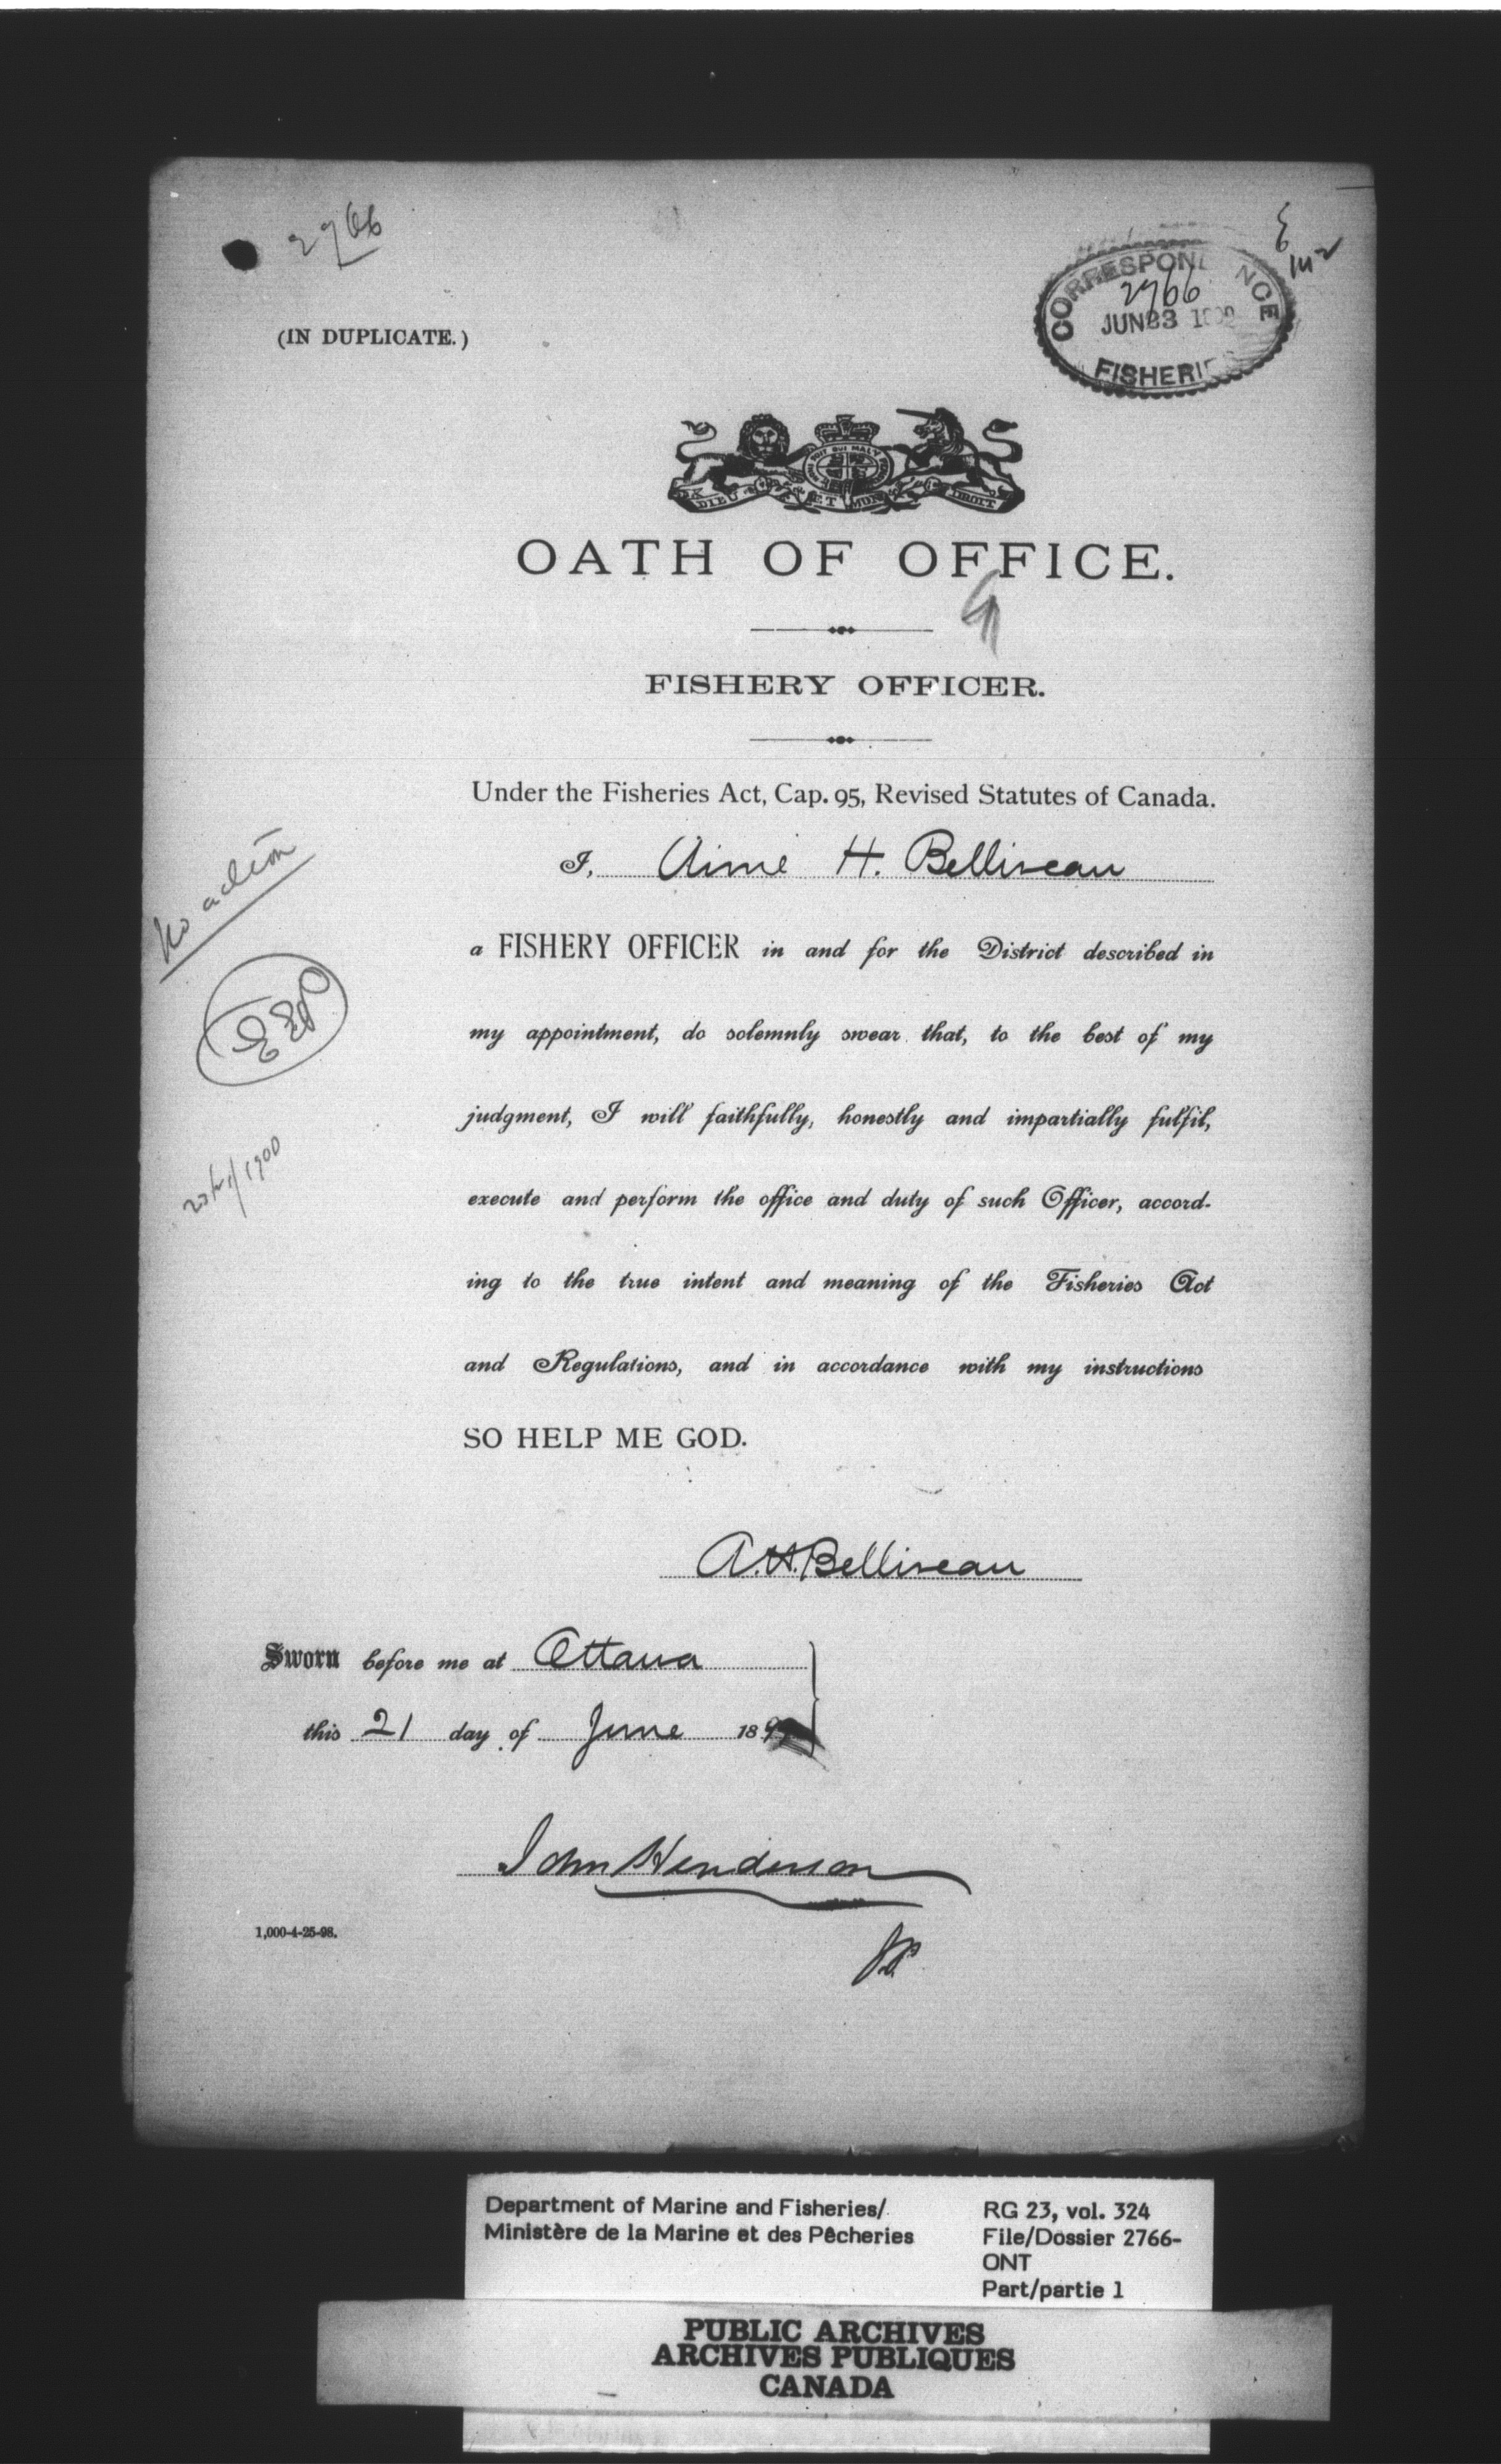 2766
(IN DUPLICATE.)
CORRESPONDENCE
2766
JUN 23
FISHERIES
DIEU ET MON DROIT
OATH OF OFFICE.
FISHERY OFFICER.
Under the Fisheries Act, Cap. 95, Revised Statutes of Canada.
I, Aimé H. Belliveau
a FISHERY OFFICER in and for the District described in
my appointment, do solemnly swear that, to the best of my
judgment, I will faithfully, honestly and impartially fulfil,
execute and perform the office and duty of such Officer, accord-
ing to the true intent and meaning of the Fisheries Act
and Regulations, and in accordance with my instructions
SO HELP ME GOD.
No action
1900
A. H. Belliveau
Sworn before me at Ottawa
this 21 day of June 189
John Henderson
JP
1,000-4-25-98.
Department of Marine and Fisheries/
Ministère de la Marine et des Pêcheries
RG 23, vol. 324
File/Dossier 2766-
ONT
Part/partie 1
PUBLIC ARCHIVES
ARCHIVES PUBLIQUES
CANADA